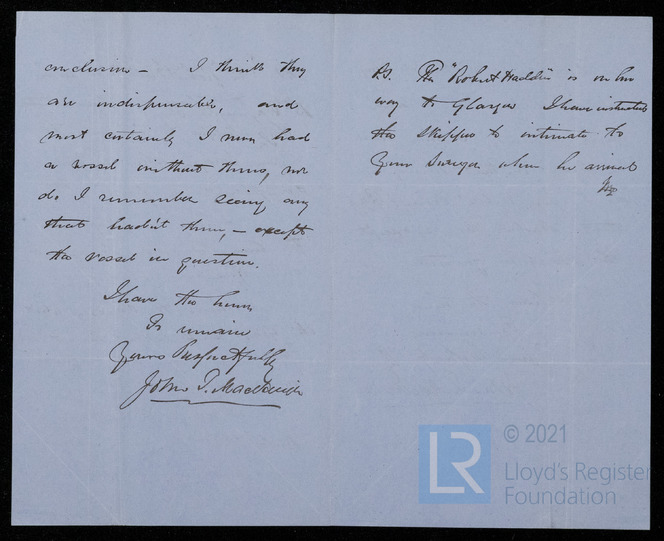 conclusion – I think they
are indispensable, and
most certainly I never had
a vessel without them, nor
do I remember seeing any
that hadn't them, – except
the vessel in question.
I have the honor
to remain
Yours Respectfully
John T.
P.S. The "Robert" is on her
way to Glasgow I have instructed
the skipper to intimate to
your Surveyor when he arrived
© 2021
LR
Lloyd's Register
Foundation